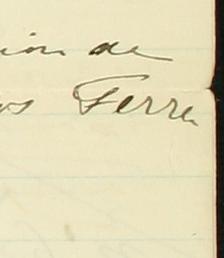 ion de
os Ferre